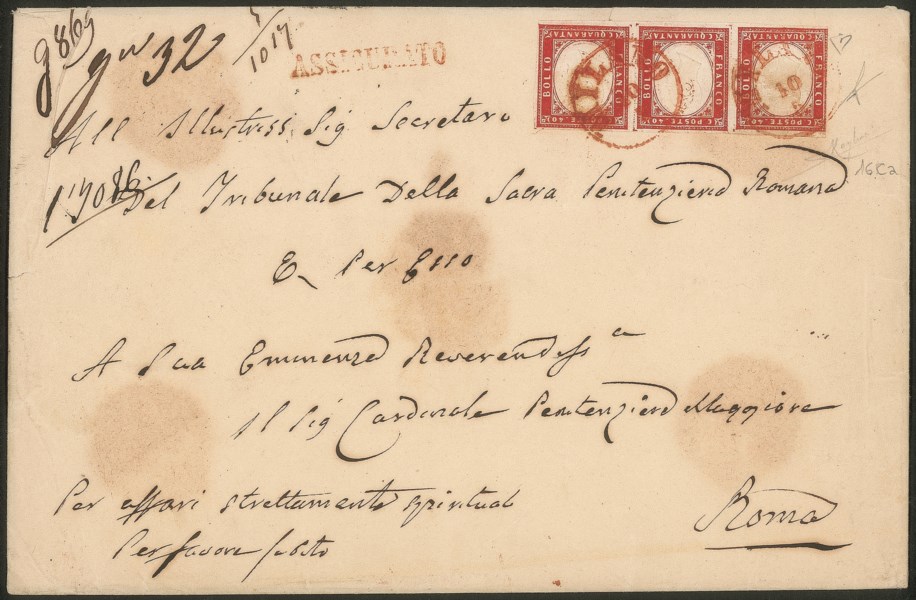 9869
gr 32
1017
ASSICURATO
C. QUARANTA C. QUARANTA C. QUARANTA
BOLLO FRANCO BOLLO FRANCO BOLLO FRANCO
C. POSTE 40 C. POSTE 40 C. POSTE 40
MILANO
10
All Illustriss Sig Secretaro
Del Tribunale Della Sacra Penitenzieria Romana
E Per Esso
A Sua Eminenza Reverendiss a
Il Sig Cardinale Penitenziere Maggiore
Per affari strettamente spirituali
Per favore subito
Roma
16Ca